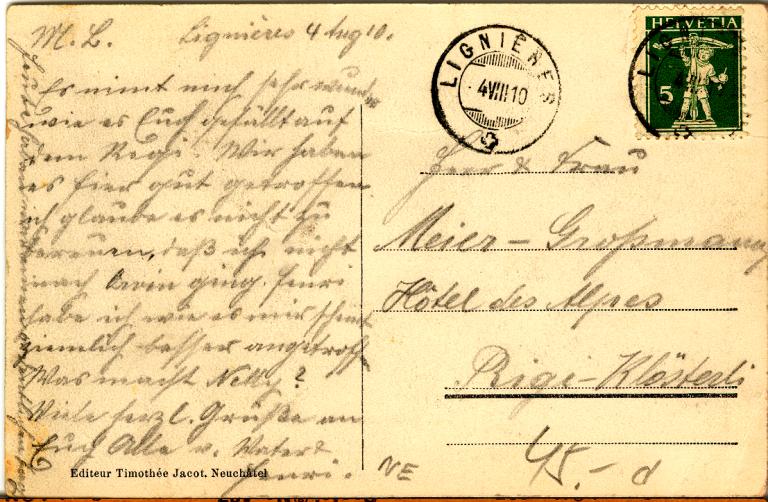 M. L. Lignières 4 Aug 10.
Es nimt mich sehr wunder
wie es Euch gefällt auf
dem Regi. Wir haben
es hier gut getroffen
ich glaube es nicht zu
bereuen, daß ich nicht
nach ging. Henri
habe ich wie es mir scheint
ziemlich besser angetroff
Was macht Nelly?
Viele herzl. Grüße an
Euch Alle v. Vater
Henri.
Editeur Timothée Jacot. Neuchâtel
LIGNIÈRES
4 VIII 10
HELVETIA
5
Herr & Frau
Meier-Großmann
Hôtel des Alpes
Rigi-Klösterli
NE
45.- d